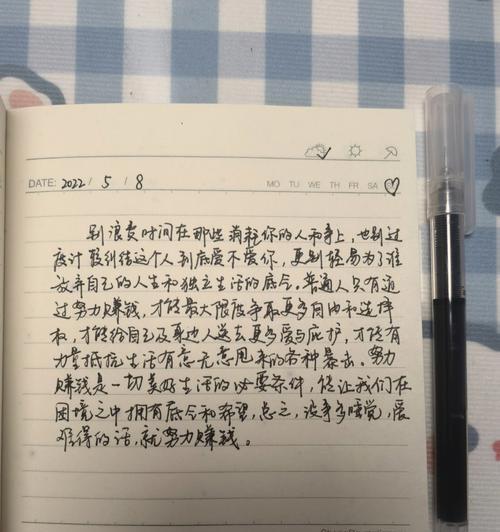 DATE: 2022 / 5 / 8
MO TU WE TH FR SA
别浪费时间在那些消耗你的人和事上，也别过
度计较纠结这个人到底爱不爱你，更别轻易为了谁
放弃自己的人生和独立生活的底气。普通人只有通
过努力赚钱，才能最大限度争取更多自由和选择
权，才能给自己及身边人送去更多爱与庇护，才能有
力量抵抗生活有意无意甩来的各种暴击。努力
赚钱是一切美好生活的必要条件，能让我们在
困境之中拥有底气和希望，总之，没事多睡觉，爱
难得的话，就努力赚钱。